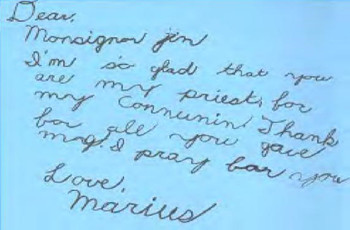 Dear,
Monsignor jim
I'm so glad that you
are my priest, for
my Connunin! Thank
for all you gave
me. I pray bar you
Love,
Marius